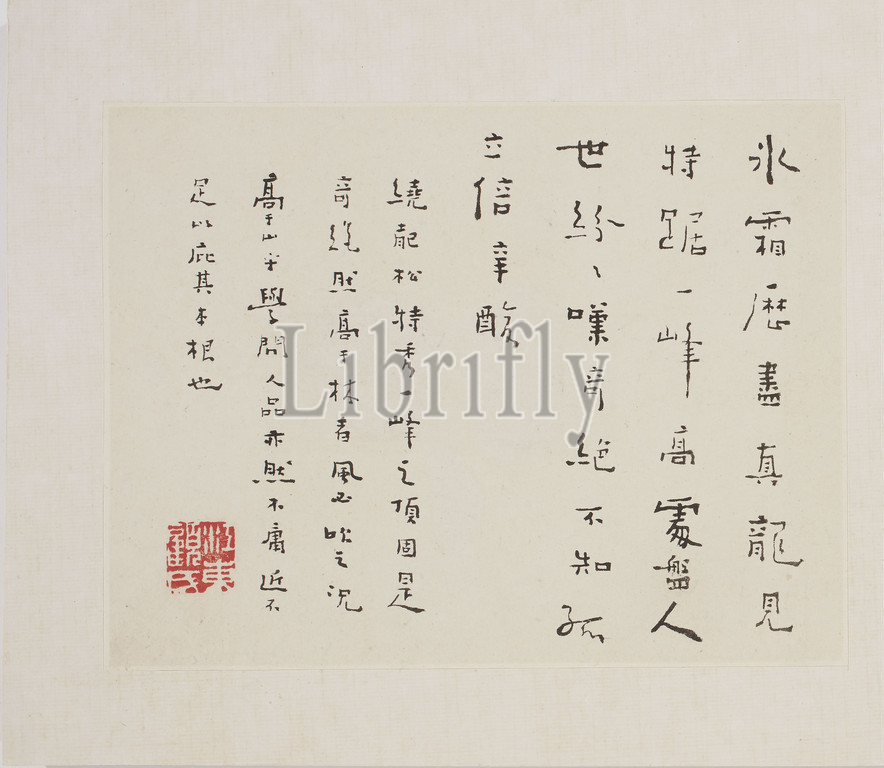 氷霜歷盡真龍見
特踞一峰高處盤人
世紛〻嘆奇絕不知孤
立倍辛酸
繞龍松特秀一峰之頂固是
奇絕然高于林者風必吹之況
高于山乎學問人品亦然不庸近不
足以庇其本根也
江東
Librifly